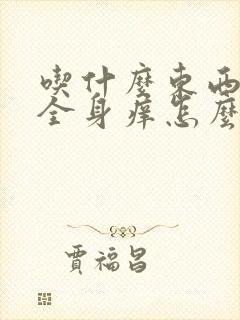 喫什麼東西
全身痒怎麼
賈福昌